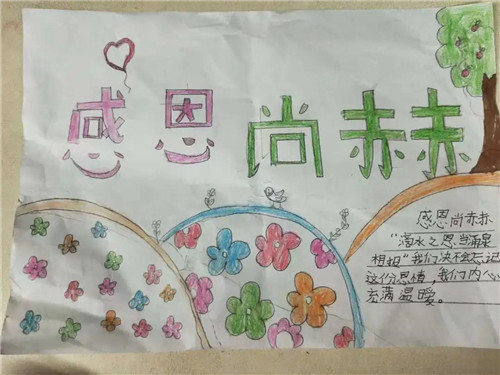 感恩尚赫
感恩尚赫
"滴水之恩当涌泉
相报"我们决不会忘记
这份恩情,我们内心
充满温暖。